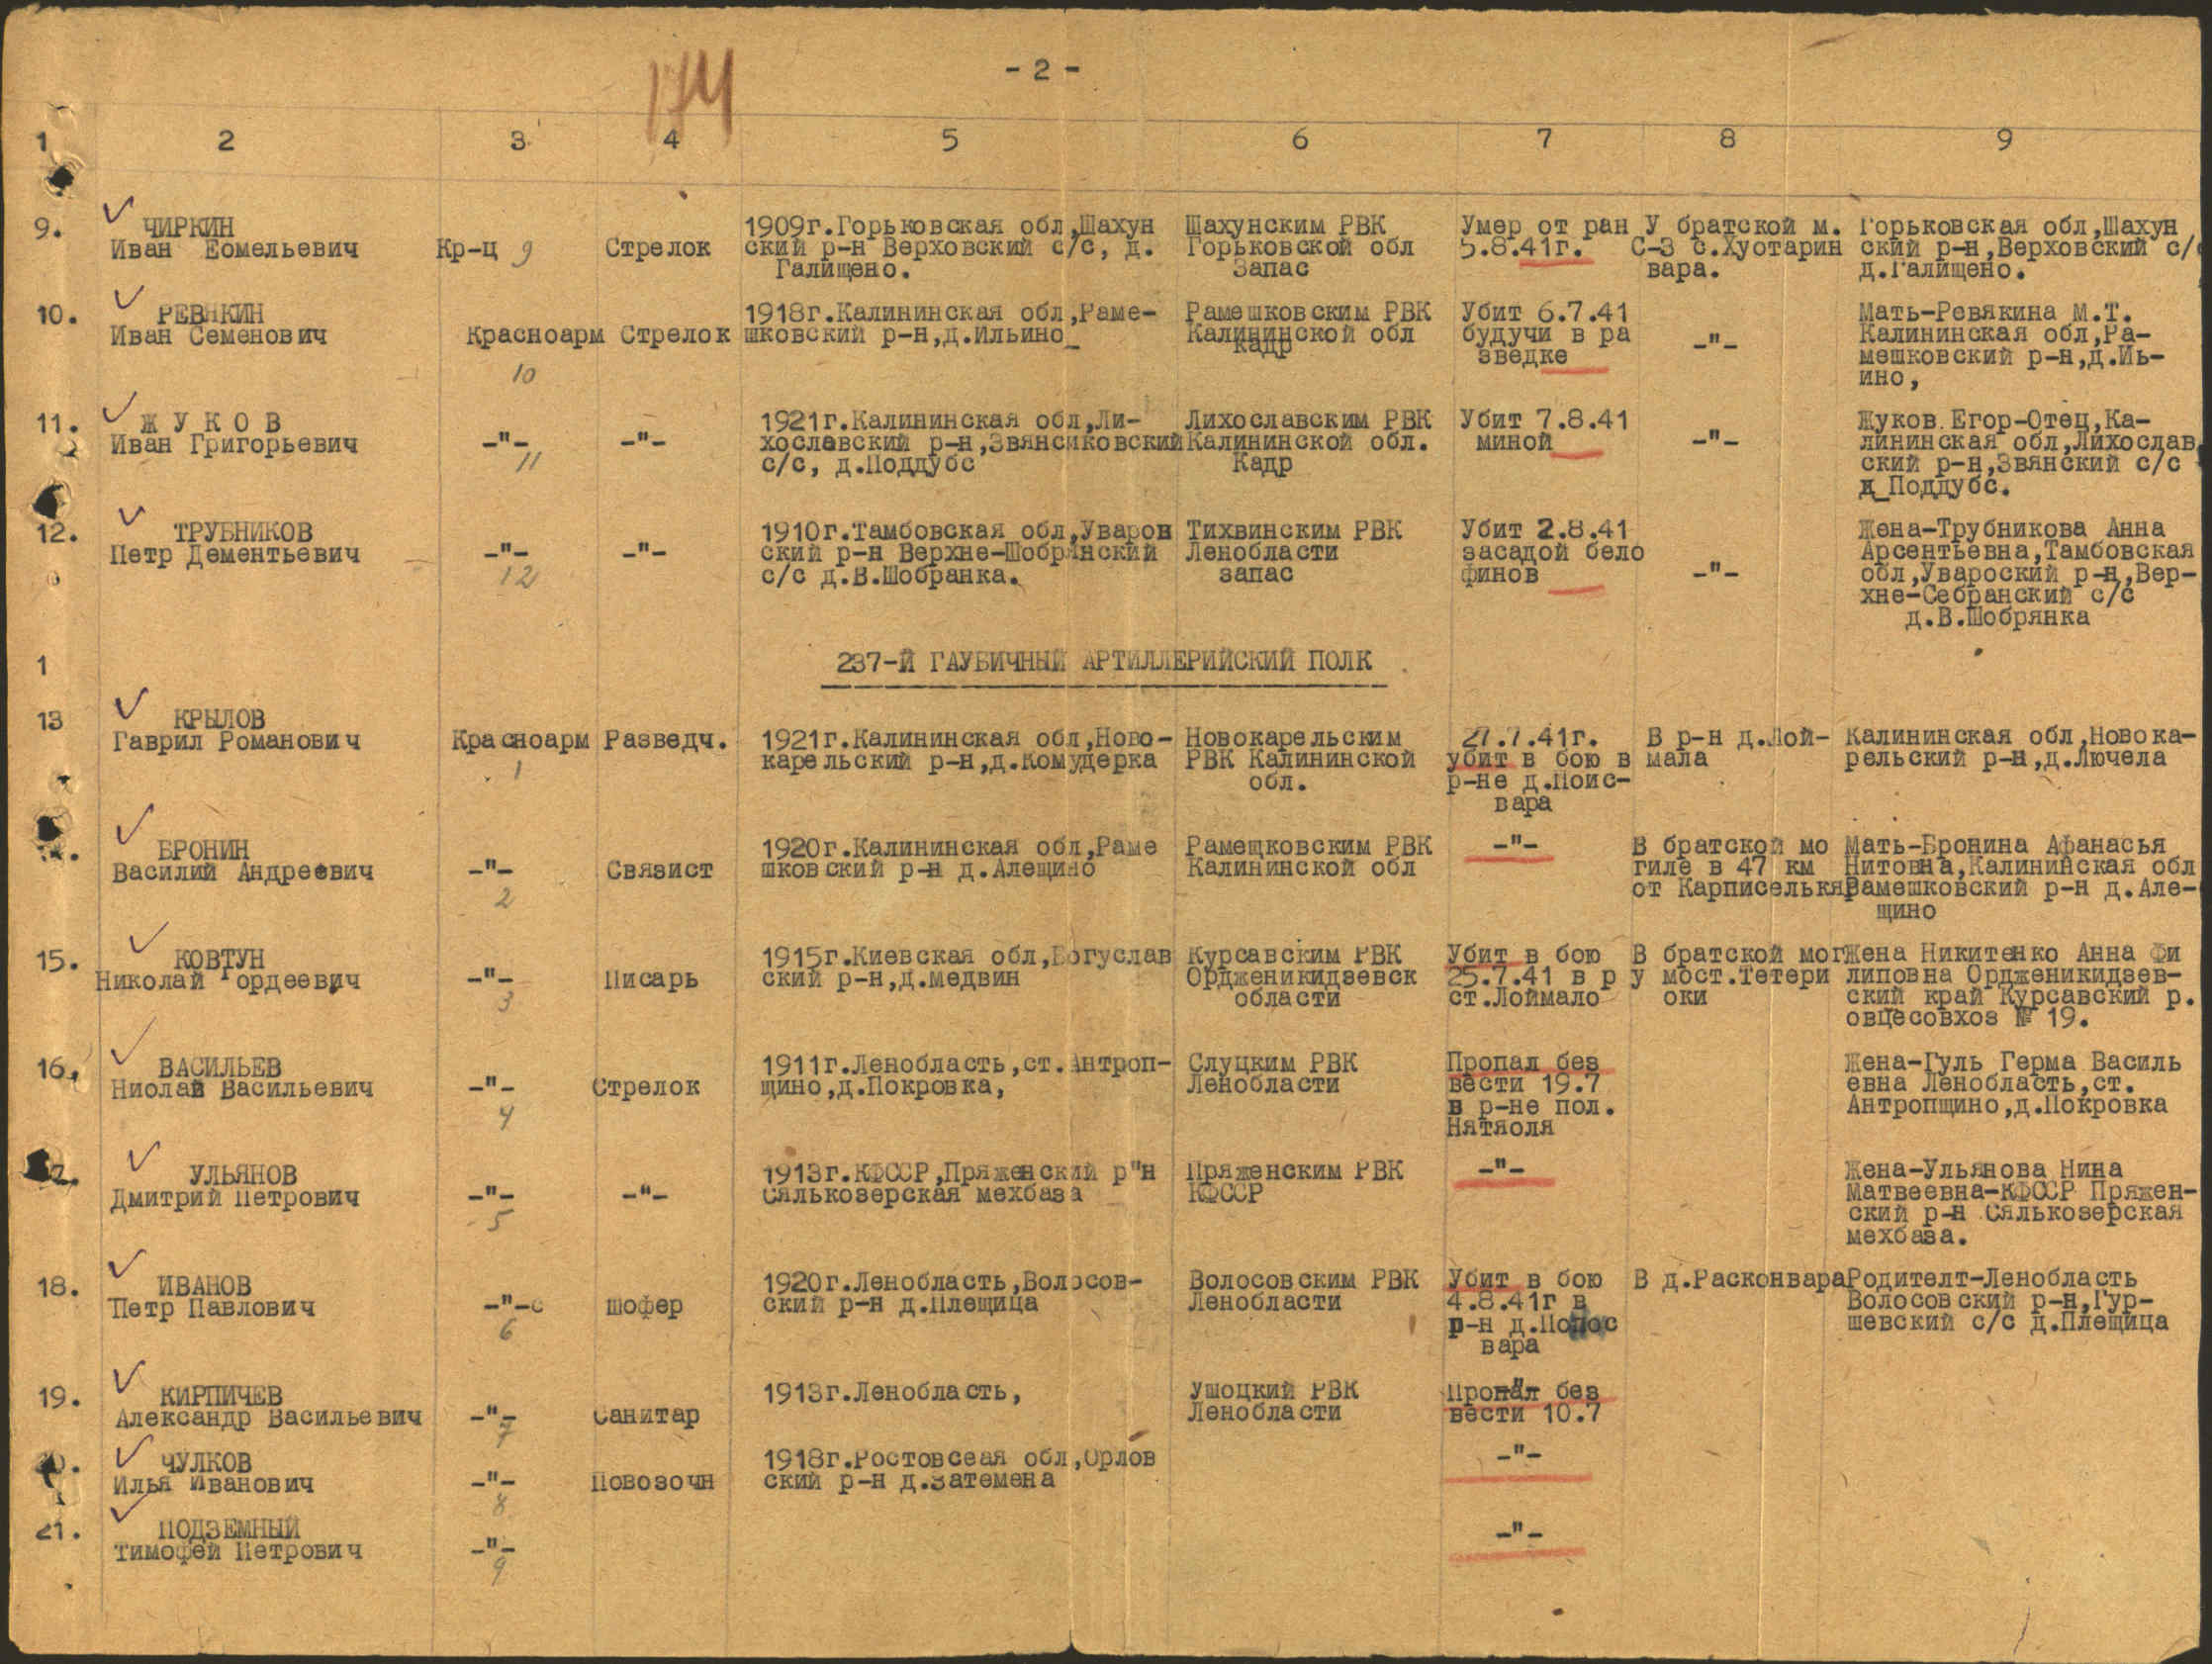 - 2 -
174
1 2 3 4 5 6 7 8 9
9. ЧИРКИН
Иван Еомельевич
Кр-ц 9
Стрелок
1909г.Горьковская обл,Шахун
ский р-н Верховский с/с, д.
Галищено.
Шахунским РВК
Горьковской обл
Запас
Умер от ран
5.8.41г.
У братской м.
С-З с.Хуотарин
вара.
Горьковская обл,Шахун
ский р-н,Верховский с/с
д.Галищено.
10. РЕВЯКИН
Иван Семенович
Красноарм
10
Стрелок
1918г.Калининская обл,Раме-
шковский р-н,д.Ильино_
Рамешковским РВК
Калининской обл
кадр
Убит 6.7.41
будучи в ра
зведке
-"-
Мать-Ревякина М.Т.
Калининская обл,Ра-
мешковский р-н,д.Иь-
ино,
11. Ж У К О В
Иван Григорьевич
-"-
11
-"-
1921г.Калининская обл,Ли-
хославский р-н,Звянсиковский
с/с, д.Поддубс
Лихославским РВК
Калининской обл.
Кадр
Убит 7.8.41
миной
-"-
Жуков Егор-Отец,Ка-
лининская обл,Лихослав
ский р-н,Звянский с/с
д_Поддубс.
12. ТРУБНИКОВ
Петр Дементьевич
-"-
12
-"-
1910г.Тамбовская обл,Уваров
ский р-н Верхне-Шобрянский
с/с д.В.Шобранка.
Тихвинским РВК
Ленобласти
запас
Убит 2.8.41
засадой бело
финов
-"-
Жена-Трубникова Анна
Арсентьевна,Тамбовская
обл,Увароский р-н,Вер-
хне-Себранский с/с
д.В.Шобрянка
1
237-Й ГАУБИЧНЫЙ АРТИЛЛЕРИЙСКИЙ ПОЛК
13 КРЫЛОВ
Гаврил Романович
Красноарм
1
Разведч.
1921г.Калининская обл,Ново-
карельский р-н,д.Комудерка
Новокарельским
РВК Калининской
обл.
27.7.41г.
убит в бою в
р-не д.Поис-
вара
В р-н д.Лой-
мала
Калининская обл,Новока-
рельский р-н,д.Лючела
БРОНИН
Василий Андреевич
-"-
2
Связист
1920г.Калининская обл,Раме
шковский р-н д.Алещино
Рамещковским РВК
Калининской обл
-"-
В братской мо
гиле в 47 км
от Карписелькя
Мать-Бронина Афанасья
Нитовна,Калининская обл
Рамешковский р-н д.Але-
щино
15. КОВТУН
Николай Гордеевич
-"-
3
Писарь
1915г.Киевская обл,Богуслав
ский р-н,д.Медвин
Курсавским РВК
Ордженикидзевск
области
Убит в бою
25.7.41 в р
ст.Лоймало
В братской мог
у мост.Тетери
оки
Жена Никитенко Анна Фи
липовна Ордженикидзев-
ский край Курсавский р.
овцесовхоз № 19.
16. ВАСИЛЬЕВ
Ниолай Васильевич
-"-
4
Стрелок
1911г.Ленобласть,ст.Антроп-
щино,д.Покровка,
Слуцким РВК
Ленобласти
Пропал без
вести 19.7
в р-не пол.
Нятяоля
Жена-Гуль Герма Василь
евна Ленобласть,ст.
Антропщино,д.Покровка
УЛЬЯНОВ
Дмитрий Петрович
-"-
5
-"-
1913г.КФССР,Пряженский р"н
Сялькозерская мехбаза
Пряженским РВК
КФССР
-"-
Жена-Ульянова Нина
Матвеевна-КФССР Пряжен-
ский р-н Сялькозерская
мехбаза.
18. ИВАНОВ
Петр Павлович
-"-с
6
шофер
1920г.Ленобласть,Волосов-
ский р-н д.Плещица
Волосовским РВК
Ленобласти
Убит в бою
4.8.41г в
р-н
вара
В д.Расконвара
Родителт-Ленобласть
Волосовский р-н,Гур-
шевский с/с д.Плещица
19. КИРПИЧЕВ
Александр Васильевич
-"-
7
Санитар
1913г.Ленобласть,
Ушоцкий РВК
Ленобласти
Пропал без
вести 10.7
ЧУЛКОВ
Илья Иванович
-"-
8
Повозочн
1918г.Ростовсеая обл,Орлов
ский р-н д.Затемена
-"-
21. ПОДЗЕМНЫЙ
Тимофей Петрович
-"-
9
-"-